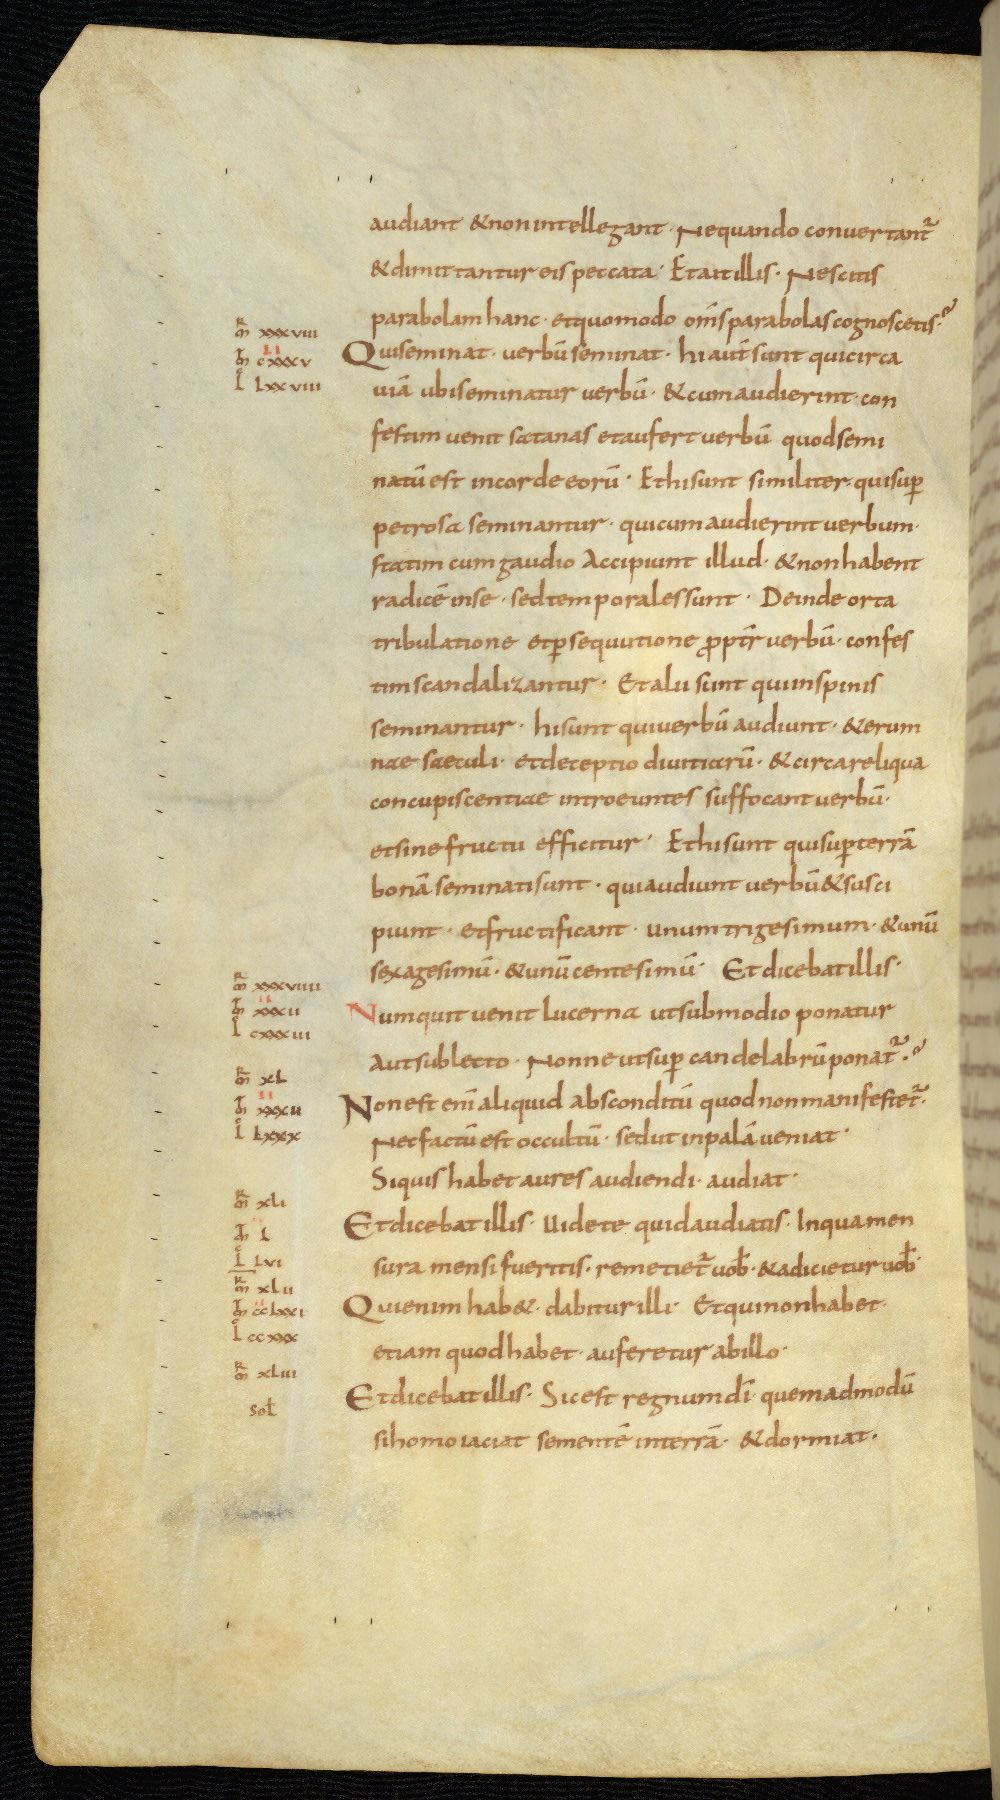 audiant & non intellegant · Nequando conuertant̃
& dimittantur eis peccata · Et ait illis · Nescitis
parabolam hanc · et quomodo om̅s parabolas cognoscetis ·
m̅r xxxviii
m̅t cxxxv
l lxxviii
Qui seminat · uerbū seminat · hi aut̄ sunt qui circa
uiā ubi seminatur uerbū · & cum audierint con
festim uenit satanas et aufert uerbū quod semi
natū est in corde eorū · Et hi sunt similiter · qui sup̄
petrosa seminantur · qui cum audierint uerbum ·
statim cum gaudio Accipiunt illud · & non habent
radicē in se · sed temporales sunt · Deinde orta
tribulatione et p̄sequutione p̄pt̄r uerbū · confes
tim scandalizantur · Et alii sunt qui in spinis
seminantur · hi sunt qui uerbū audiunt · & erum
nae saeculi · et deceptio diuitiarū · & circa reliqua
concupiscentiae introeuntes suffocant uerbū ·
et sine fructu efficitur · Et hi sunt qui sup̄ terrā
bonā seminati sunt · qui audiunt uerbū & susci
piunt · et fructificant · unum trigesimum · & unū
sexagesimū · & unū centesimū · Et dicebat illis ·
m̅r xxxviiii
m̅t xxxii
l cxxxiii
Numquit uenit lucerna ut sub modio ponatur
Aut sub lecto · Nonne ut sup̄ candelabrū ponat̃ ·
m̅r xl
m̅t xxxii
l lxxx
Non est enī aliquid absconditū quod non manifestet̃ ·
Nec factū est occultū · sed ut in palā ueniat ·
Si quis habet aures audiendi · audiat ·
m̅r xli
m̅t l
l lvi
Et dicebat illis · Uidete quid audiatis · In qua men
sura mensi fueritis · remetiet̃ uob̄ · & adicietur uob̄ ·
m̅r xlii
m̅t cclxxi
l ccxxx
Qui enim hab& · dabitur illi · Et qui non habet ·
etiam quod habet · auferetur ab illo ·
m̅r xliii
sol̄
Et dicebat illis · Sic est regnum dī · quemadmodū
si homo iaciat sementē in terrā · & dormiat ·